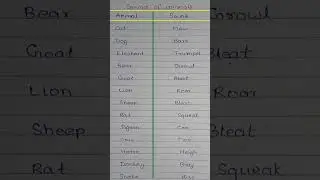 Sound of animals
Animal Sound
Cat Mew
Dog Bark
Elephant Trumpet
Bear Growl
Goat Bleat
Lion Roar
Sheep Bleat
Rat Squeak
Pigeon Coo
Horse Neigh
Donkey Bray
Snake Hiss
Bear Growl
Goat Bleat
Lion Roar
Sheep Bleat
Rat Squeak